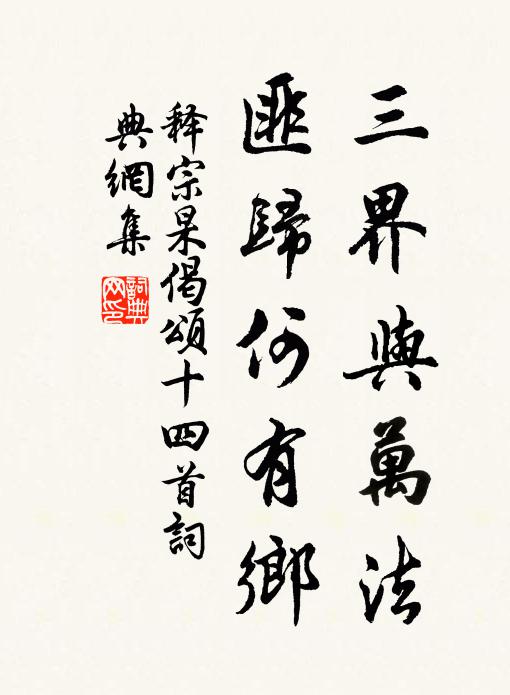 三界與萬法
匪歸何有鄉
释宗杲偈頌十四首詞
典網集
詞典
网印